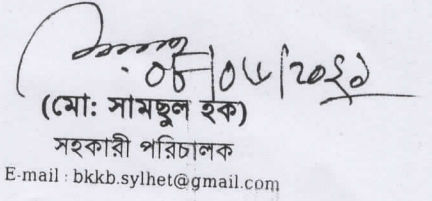 (মো: সামছুল হক)
সহকারী পরিচালক
E-mail : bkkb.sylhet@gmail.com